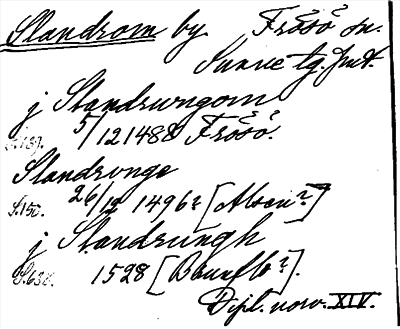 Slandrom by Frösö sn.
Sunne tg. Jmt.
j Slandrwngom
S.137. 5/12 1488 Frösö.
Slandrvnge
S.150. 26/12 1496? [Alsen?]
j Slandrungh
S.638. 1528 [Brunflo?].
Dipl. norv. XIV.